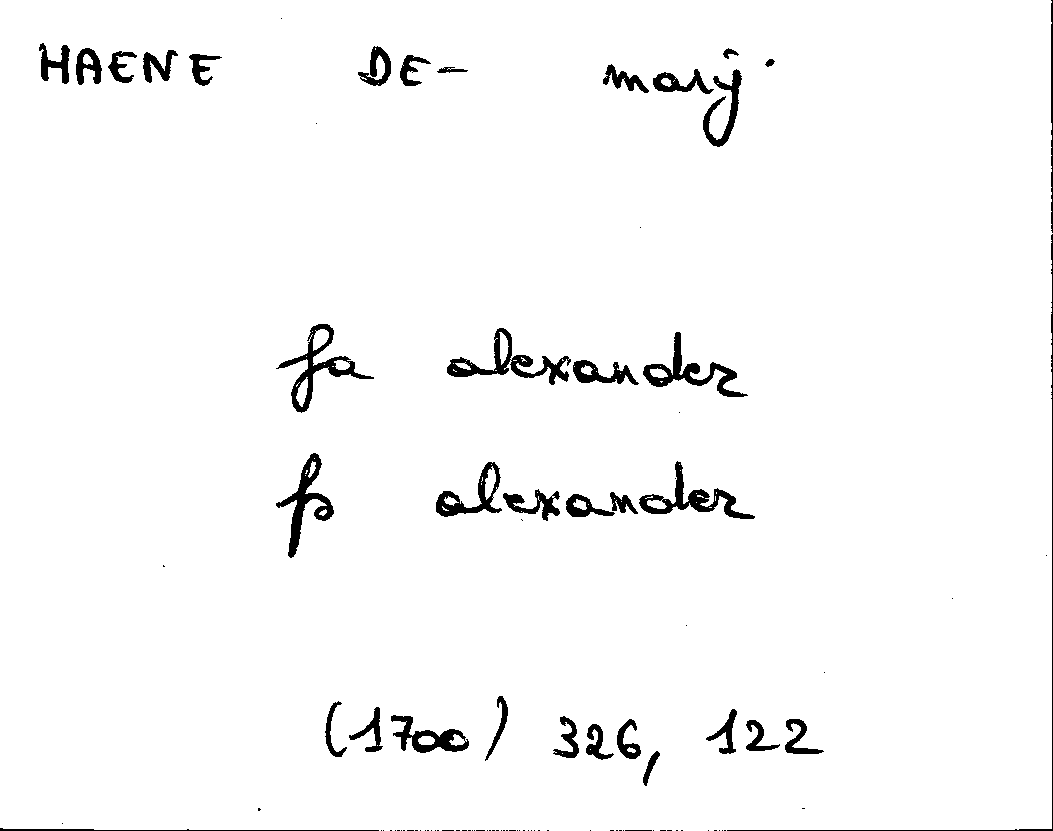 HAENE DE- marÿ
fa alexander
fs alexander
(1700) 326, 122